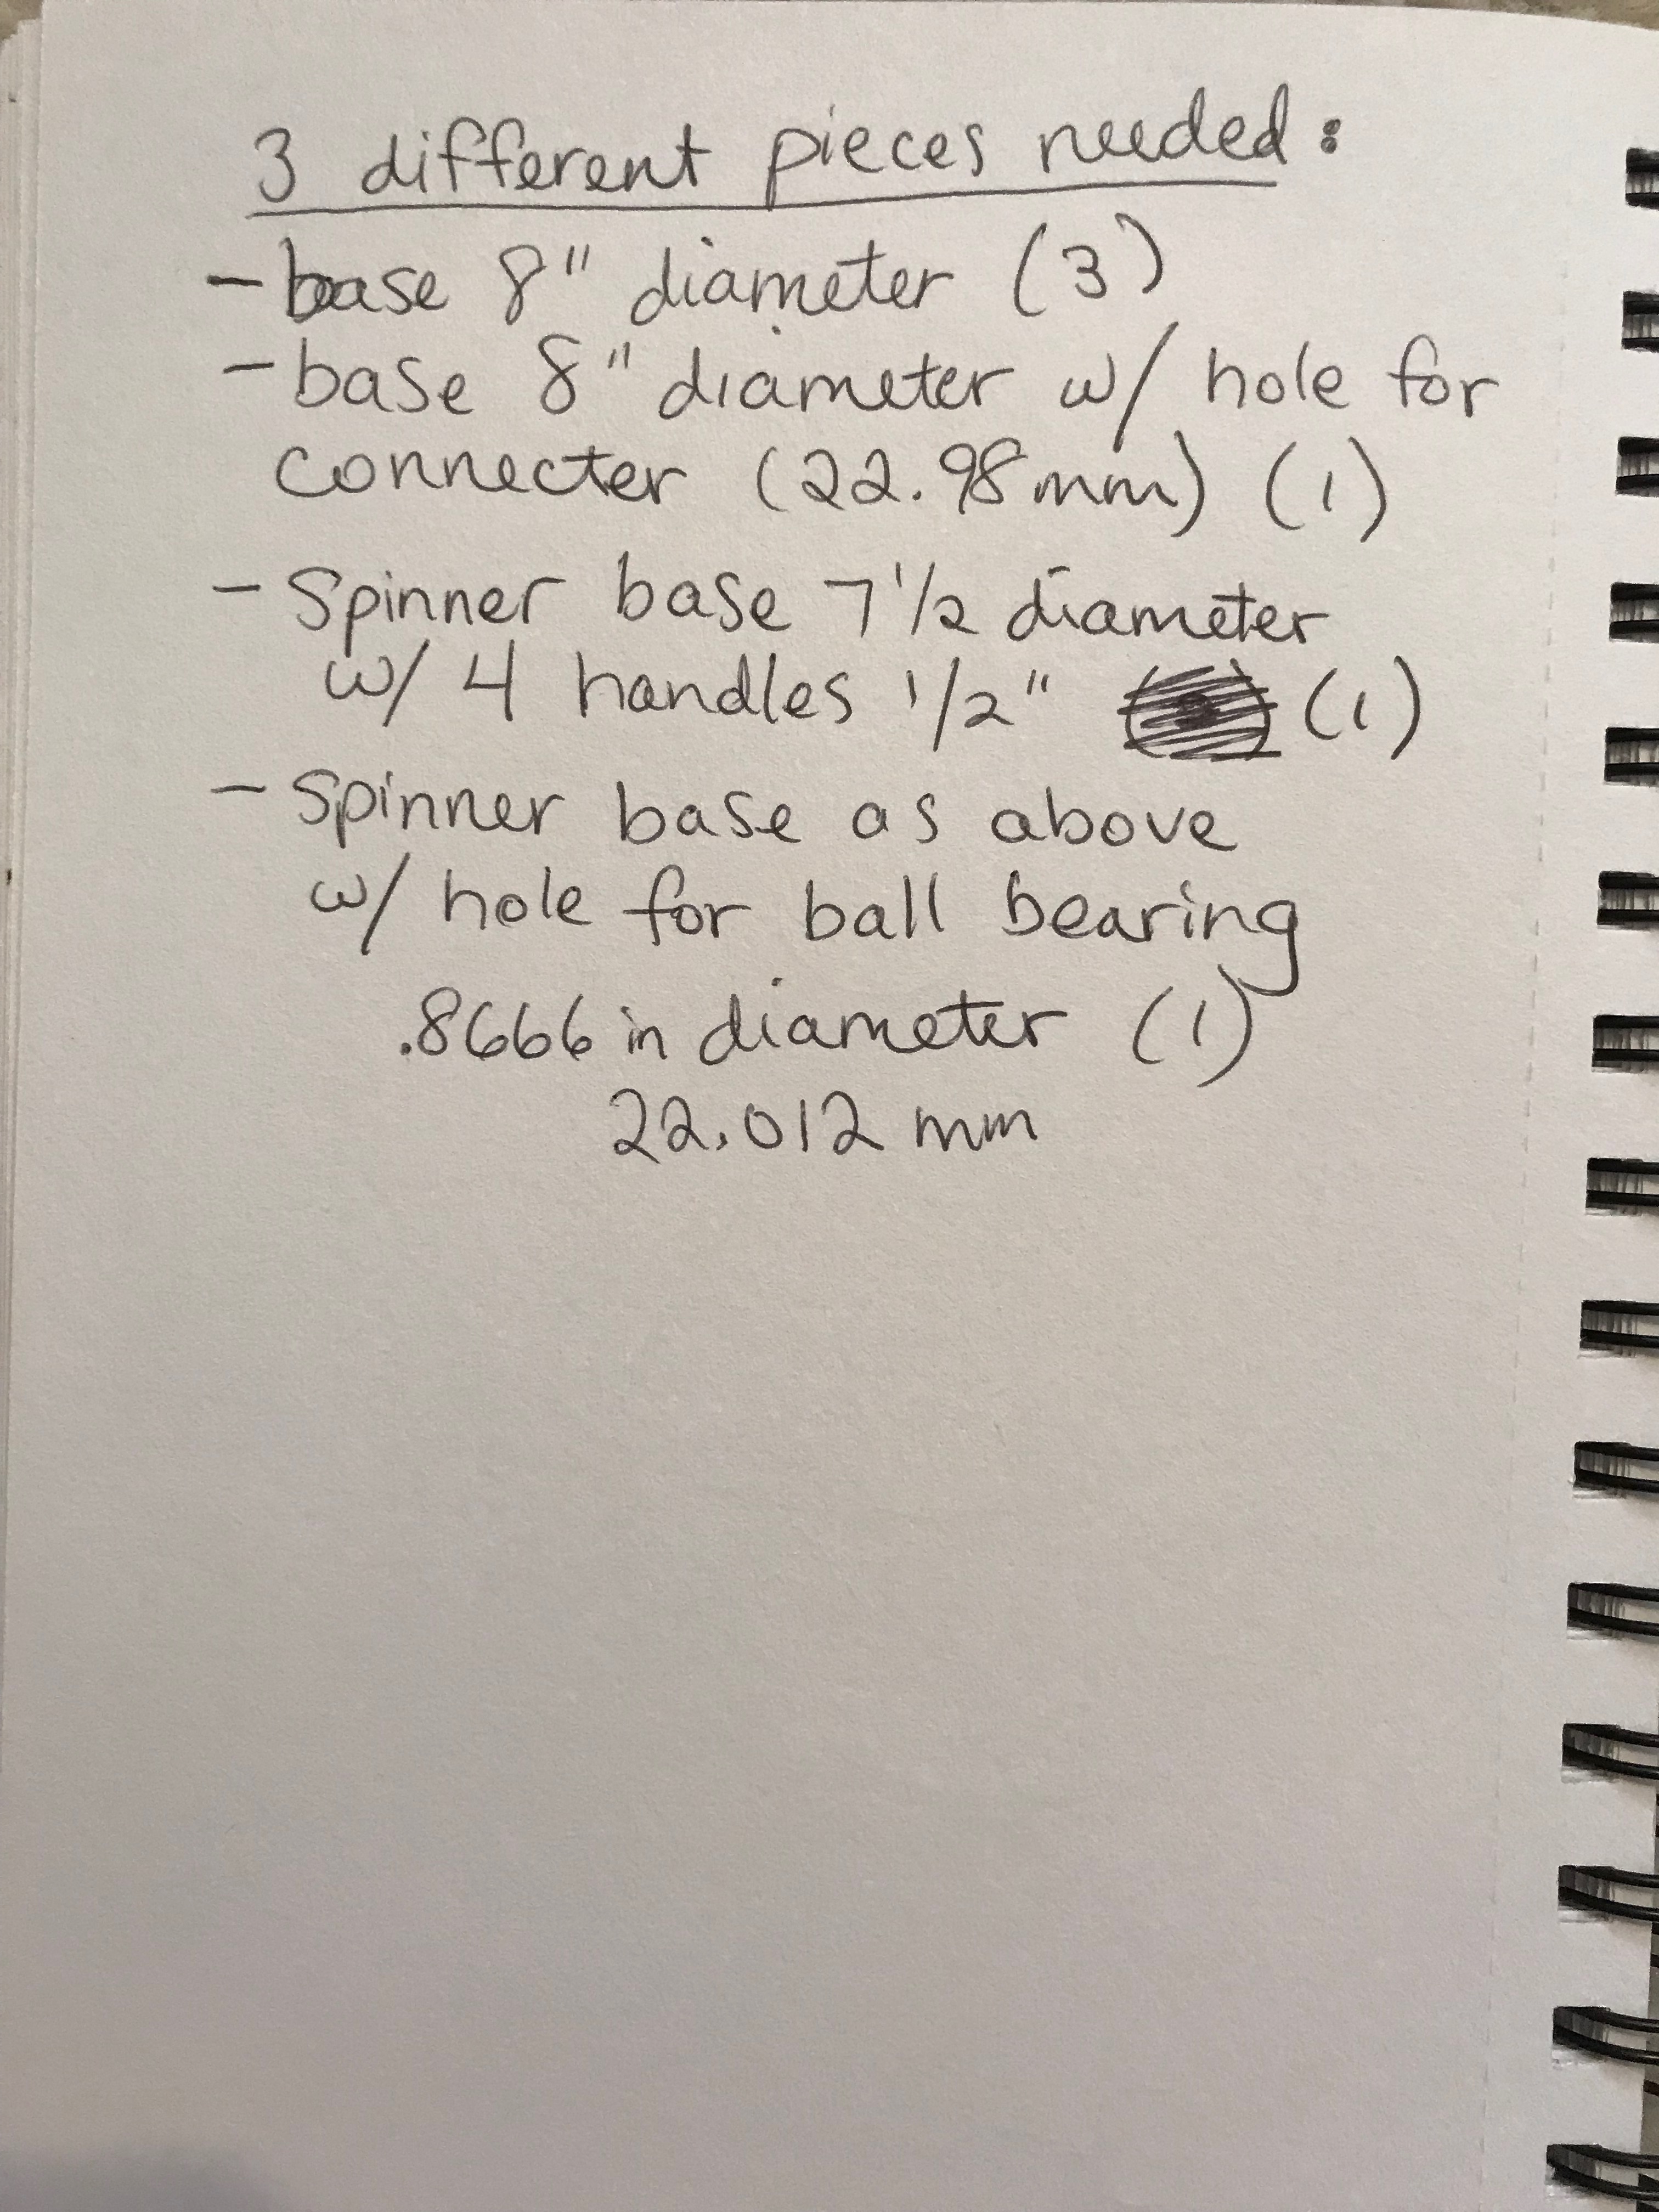 3 different pieces needed:
- base 8" diameter (3)
- base 8" diameter w/ hole for
connecter (22.98mm) (1)
- Spinner base 7 1/2 diameter
w/ 4 handles 1/2" (1)
- Spinner base as above
w/ hole for ball bearing
.8666 in diameter (1)
22.012 mm